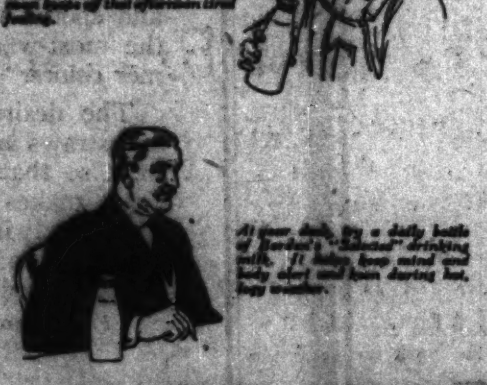 of that afternoon tired
feeling.
At your desk, try a daily bottle
of Borden's "Selected" drinking
milk. It helps keep mind and
body alert and keen during hot,
logy weather.